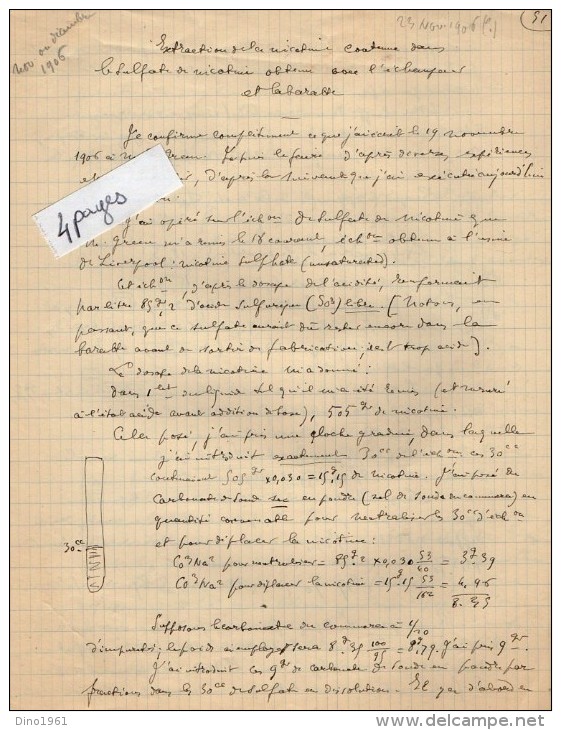 23 Nov 1906 (.)
51
Nov ou décembre
1906
Extraction de la nicotine contenue dans
le sulfate de nicotine obtenu avec l'échangeur
et la baratte
Je confirme complètement ce que j'ai écrit le 19 novembre
1906 à Green. J'ai pu le faire d'après diverses expériences
et d'après la suivante que j'ai exécutée aujourd'hui
4 pages
J'ai opéré sur l'échon de sulfate de nicotine que
Mr. Green m'a remis le 18 courant, échon obtenu à l'usine
de Liverpool: nicotine sulphate (unsaturated).
Cet échon, d'après le dosage de l'acidité, renfermait
par litre 85gr,2 d'acide sulfurique (SO3) libre. [Notons, en
passant, que ce sulfate aurait dû rester encore dans la
baratte avant sa sortie de fabrication; il est trop acide].
Le dosage de la nicotine m'a donné:
dans 1 lit du liquide tel qu'il m'a été remis (et mesuré
à l'état acide avant addition de base), 505gr de nicotine.
Cela posé, j'ai pris une cloche graduée, dans laquelle
j'ai introduit exactement 30cc de l'échon; ces 30cc
contenaient 505gr x0,030 = 15g,15 de nicotine. J'ai pesé du
carbonate de soude sec en poudre (sel de soude du commerce) en
quantité convenable pour neutraliser les 30cc d'échon
30cc
et pour déplacer la nicotine:
CO3Na2 pour neutraliser = 85g,2 x0,030 53/40 = 3g,39
CO3Na2 pour déplacer la nicotine = 15g,15 53/162 = 4,96
8,35
Supposons le carbonate du commerce à 1/20
d'impuretés; le poids à employer sera 8g,35 100/95 = 8g,79. J'ai pris 9gr.
J'ai introduit ces 9gr de carbonate de soude en poudre par
fractions dans les 30cc de sulfate en dissolution. Il y a d'abord un
Dino1961
www.delcampe.net